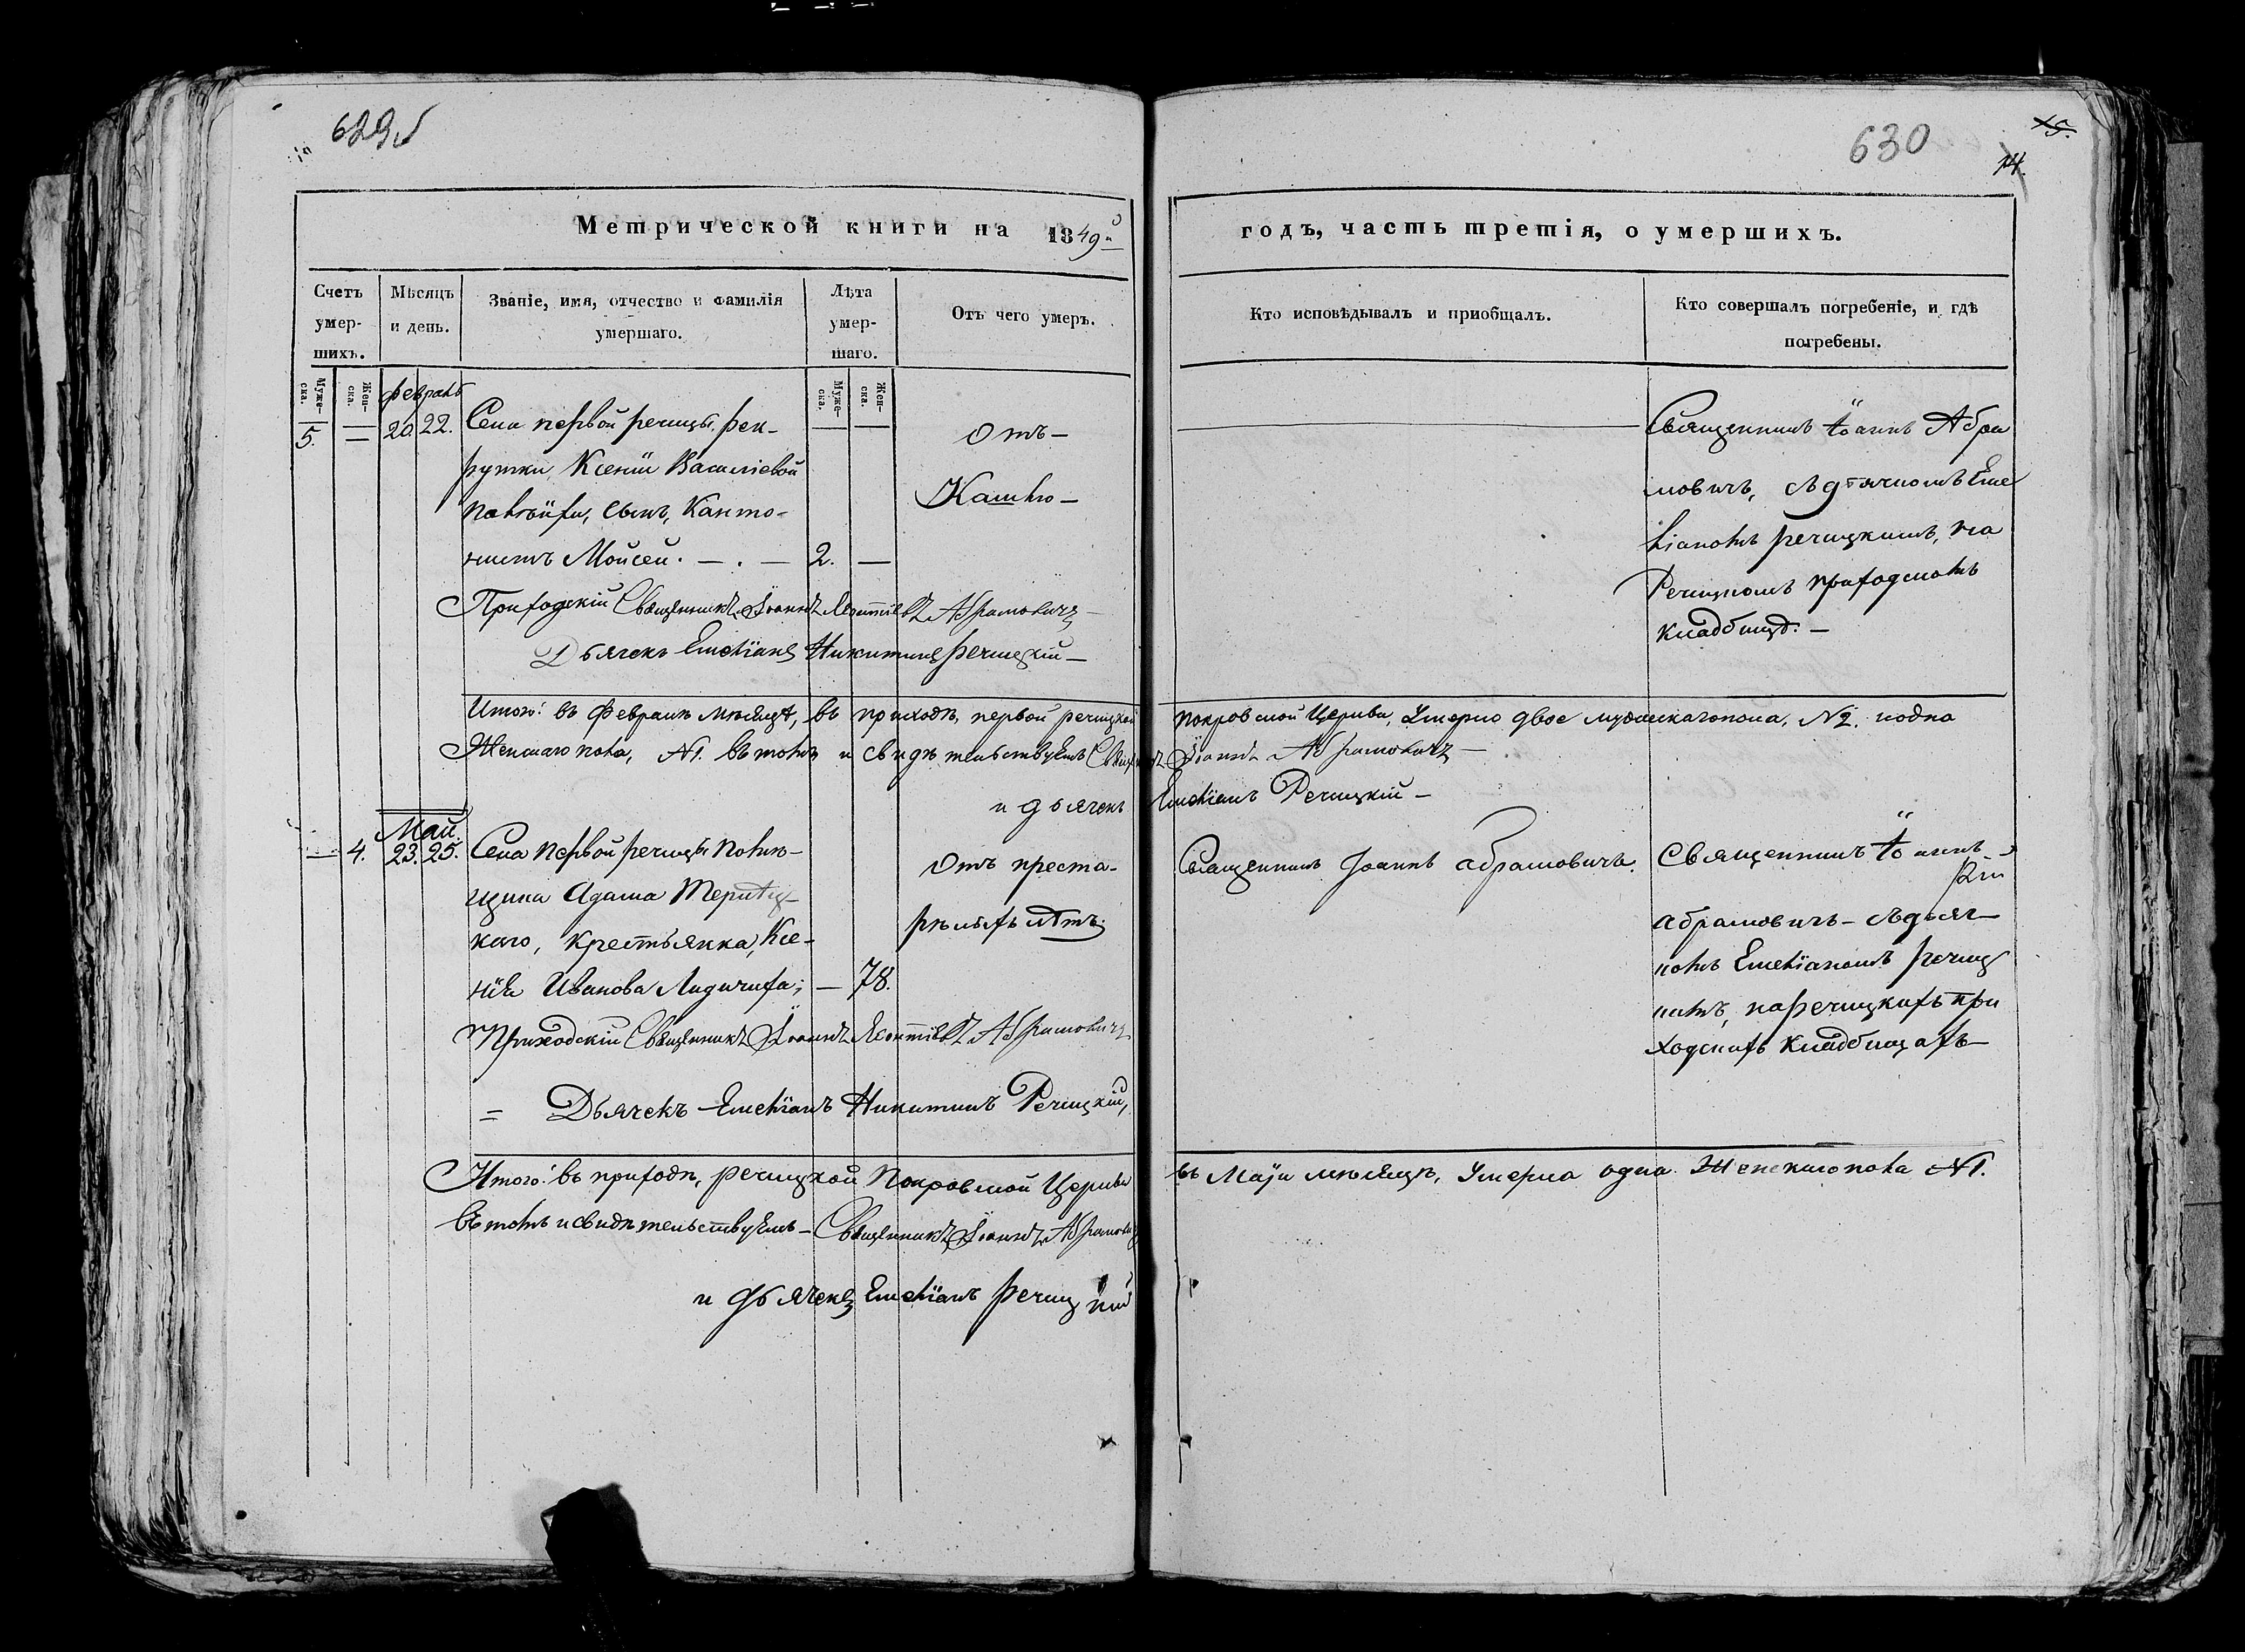 629об
630
15.
14.
Метрической книги на 1849й
годъ, часть третія, о умершихъ.
Счетъ умер-шихъ.
Мѣсяцъ и день.
Званіе, имя, отчество и Фамилія умершаго.
Лѣта умер-шаго.
Отъ чего умеръ.
Кто исповѣдывалъ и приобщалъ.
Кто совершалъ погребеніе, и гдѣ погребены.
Муже-ска.
Жен-ска.
Муже-ска.
Жен-ска.
Февраль
5. — 20 22. Села первой речицы, рек-
рутки, Ксеніи Василіевой
сынъ, Канто-
нистъ Мойсей. — . — 2. —
отъ —
Кашлю —
Священникъ Іоаннъ Абра
мовичъ, съ дячкомъ Еме
ліаномъ речицкимъ, на
Речицкомъ приходскомъ
кладбищѣ. —
Приходскій Священникъ Іоаннъ Леонтіевъ Абрамовичъ —
Дьячекъ Емеліанъ Никитинъ речицкій —
Итого: въ Февралѣ мѣсяцѣ, въ приходѣ, первой речицкой покровской Церкви, Умерло двое мужескаго пола, №2. и одна
Женскаго пола, №1. въ томъ и свидѣтельствуемъ Священникъ Іоаннъ Абрамовичъ —
и дьячекъ Емеліанъ Речицкій —
Май.
— 4. 23. 25. Села первой речицы помѣ-
щика Адама Терлец-
каго, крестьянка, Ксе-
нія Иванова Лидичиха; — 78.
отъ преста-
рѣлыхъ лѣтъ.
Священникъ Іоаннъ Абрамовичъ.
Священникъ Іоаннъ
Абрамовичъ — съ дьяч-
комъ Емеліаномъ речиц
кимъ, на речицкихъ при
ходскихъ кладбищахъ —
Приходскій Священникъ Іоаннъ Леонтіевъ Абрамовичъ
= Дьячекъ Емеліанъ Никитинъ Речицкій,
Итого: въ приходѣ, речицкой Покровской Церкви въ Маіи мѣсяцѣ, Умерла одна Женскаго пола №1.
въ томъ и свидѣтельствуемъ — Священникъ Іоаннъ Абрамовичъ
и дьячекъ Емеліанъ речицкій